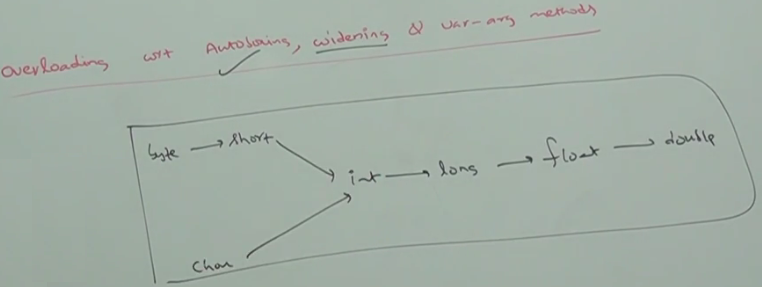 Overloading wrt Autoboxing, widening & var-arg methods
byte → short
int → long → float → double
char